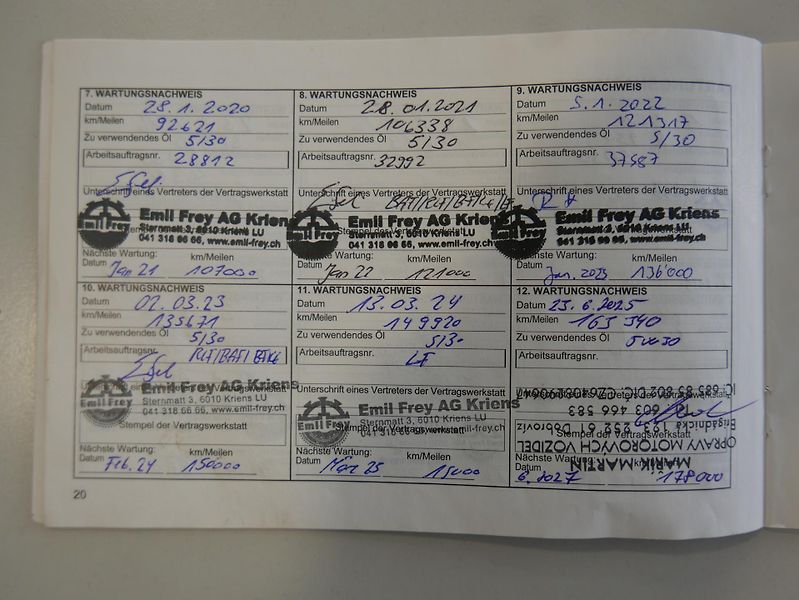 7. WARTUNGSNACHWEIS
Datum 28.1.2020
km/Meilen 92621
Zu verwendendes Öl 5/30
Arbeitsauftragsnr. 28812
Unterschrift eines Vertreters der Vertragswerkstatt
Emil Frey
Emil Frey AG Kriens
Sternmatt 3, 6010 Kriens LU
041 318 66 66, www.emil-frey.ch
Nächste Wartung:
Datum Jan 21 km/Meilen 107000
8. WARTUNGSNACHWEIS
Datum 28.01.2021
km/Meilen 106338
Zu verwendendes Öl 5/30
Arbeitsauftragsnr. 32992
Unterschrift eines Vertreters der Vertragswerkstatt
Emil Frey
Emil Frey AG Kriens
Sternmatt 3, 6010 Kriens LU
Stempel der Vertragswerkstatt
041 318 66 66, www.emil-frey.ch
Nächste Wartung:
Datum Jan 22 km/Meilen 121000
9. WARTUNGSNACHWEIS
Datum 5.1.2022
km/Meilen 121317
Zu verwendendes Öl 5/30
Arbeitsauftragsnr. 37587
Unterschrift eines Vertreters der Vertragswerkstatt
Emil Frey
Emil Frey AG Kriens
Sternmatt 3, 6010 Kriens LU
041 318 66 66, www.emil-frey.ch
Nächste Wartung:
Datum Jan. 2023 km/Meilen 136'000
10. WARTUNGSNACHWEIS
Datum 02.03.23
km/Meilen 135671
Zu verwendendes Öl 5/30
Arbeitsauftragsnr.
Unterschrift eines Vertreters der Vertragswerkstatt
Emil Frey
Emil Frey AG Kriens
Sternmatt 3, 6010 Kriens LU
041 318 66 66, www.emil-frey.ch
Stempel der Vertragswerkstatt
Nächste Wartung:
Datum Feb. 24 km/Meilen 150000
11. WARTUNGSNACHWEIS
Datum 13.03.24
km/Meilen 149920
Zu verwendendes Öl 5/30
Arbeitsauftragsnr.
Unterschrift eines Vertreters der Vertragswerkstatt
Emil Frey
Emil Frey AG Kriens
Sternmatt 3, 6010 Kriens LU
Stempel der Vertragswerkstatt
Nächste Wartung:
Datum März 25 km/Meilen
12. WARTUNGSNACHWEIS
Datum 23.6.2025
km/Meilen 163 540
Zu verwendendes Öl 5W30
Arbeitsauftragsnr.
Unterschrift eines Vertreters der Vertragswerkstatt
MAŘÍK MARTIN
OPRAVY MOTOROVÝCH VOZIDEL
603 466 583
Stempel der Vertragswerkstatt
Nächste Wartung:
Datum 6.2027 km/Meilen 178000
20